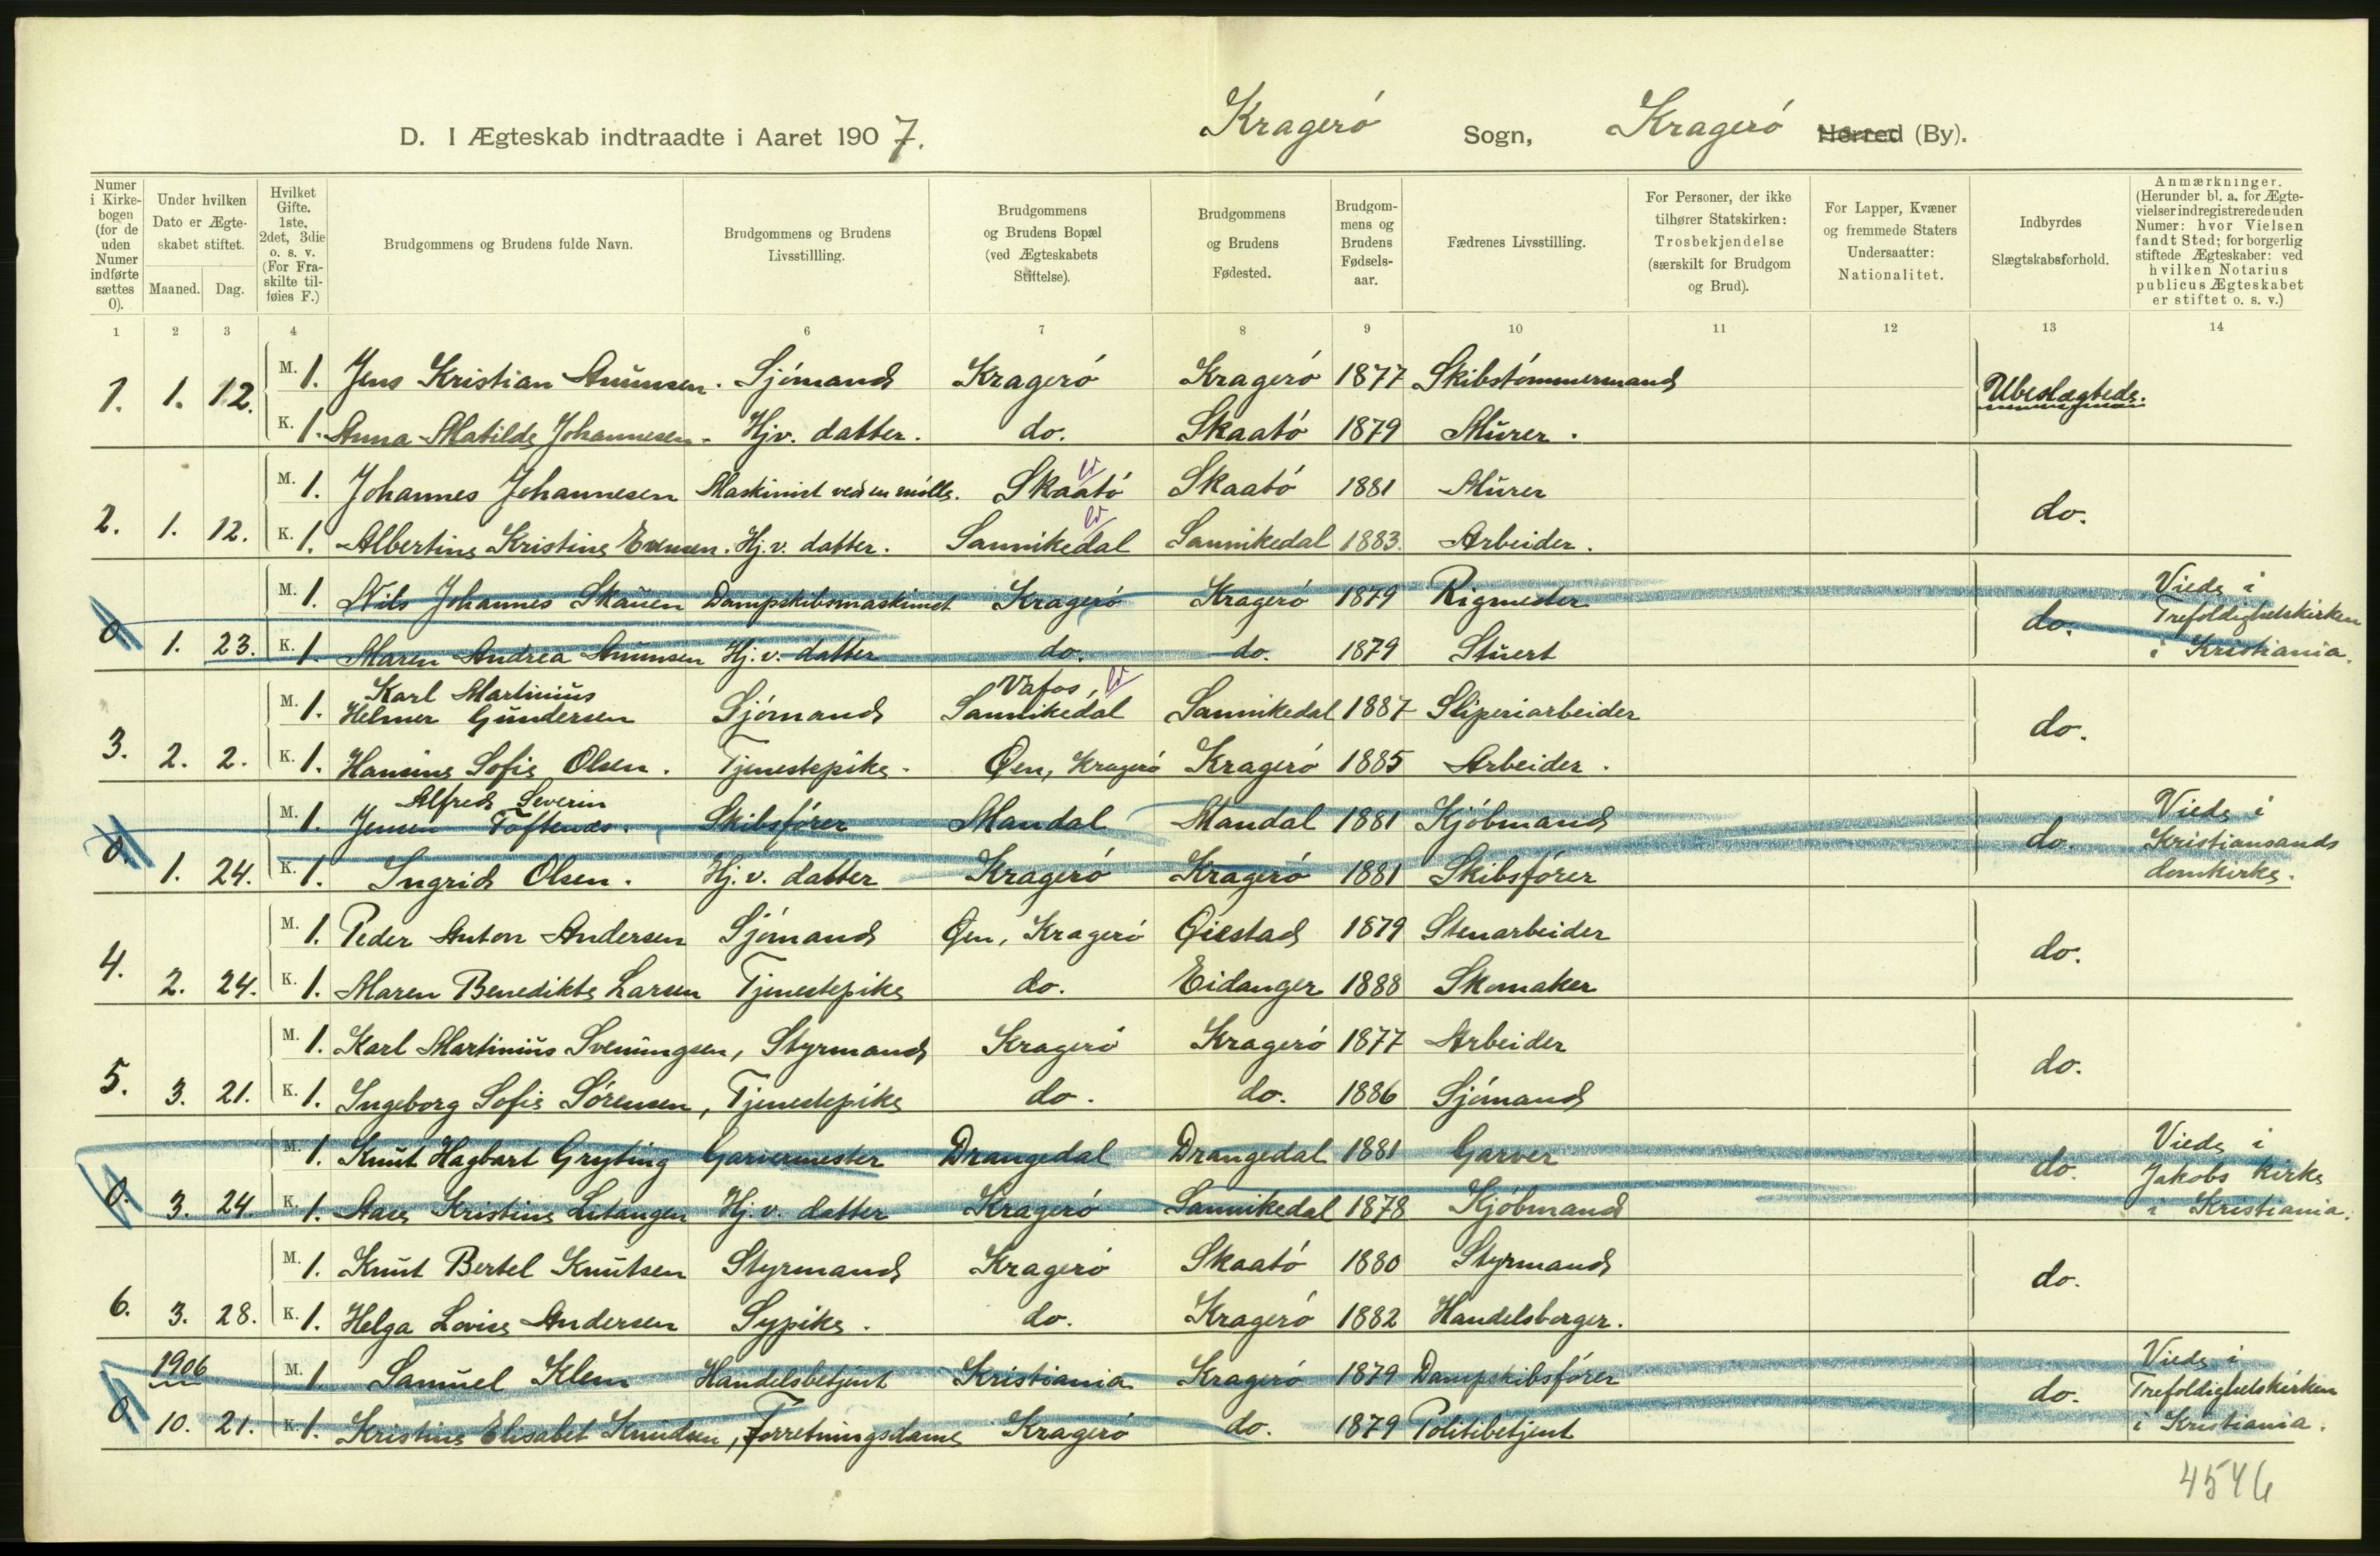 Kragerø Sogn, Kragerø Herred (By).
D. I Ægteskab indtraadte i Aaret 1907.
Numer i Kirkebogen (for de uden Numer indførte sættes 0).
Under hvilken Dato er Ægteskabet stiftet.
Maaned. Dag.
Hvilket Gifte. 1ste, 2det, 3die o. s. v. (For Fraskilte tilføies F.)
Brudgommens og Brudens fulde Navn.
Brudgommens og Brudens Livsstillling.
Brudgommens og Brudens Bopæl (ved Ægteskabets Stiftelse).
Brudgommens og Brudens Fødested.
Brudgommens og Brudens Fødselsaar.
Fædrenes Livsstilling.
For Personer, der ikke tilhører Statskirken: Trosbekjendelse (særskilt for Brudgom og Brud).
For Lapper, Kvæner og fremmede Staters Undersaatter: Nationalitet.
Indbyrdes Slægtskabsforhold.
Anmærkninger. (Herunder bl. a. for Ægtevielser indregistrerede uden Numer: hvor Vielsen fandt Sted; for borgerlig stiftede Ægteskaber: ved hvilken Notarius publicus Ægteskabet er stiftet o. s. v.)
1 2 3 4 6 7 8 9 10 11 12 13 14
M. 1. Jens Kristian Anunsen. Sjömand Kragerö Kragerö 1877 Skibstömmermand
1. 1. 12. Ubeslægtede.
K. 1. Anna Matilde Johannesen. Hjv. datter. do. Skaatö 1879 Murer.
M. 1. Johannes Johannesen Maskinist ved en mölle. Skaatö Skaatö 1881 Murer
2. 1. 12. do.
K. 1. Albertine Kristine Evensen. Hj. v. datter. Sannikedal Sannikedal 1883. Arbeider.
M. 1. Nils Johannes Skauen Dampskibsmaskinist Kragerö Kragerö 1879 Rigmester Viede i Trefoldighetskirken i Kristiania.
0 1. 23. do.
K. 1. Maren Andrea Anunsen Hj. v. datter do. do. 1879 Stuert
M. 1. Karl Martinius Helmer Gundersen Sjömand Vafos, Sannikedal Sannikedal 1887 Sliperiarbeider
3. 2. 2. do.
K. 1. Hansine Sofie Olsen. Tjenestepike. Öen, Kragerö Kragerö 1885 Arbeider.
M. 1. Alfred Severin Jensen Toftenæs. Skibsförer Mandal Mandal 1881 Kjöbmand Viede i Kristiansands domkirke.
0. 1. 24. do.
K. 1. Ingrid Olsen. Hj. v. datter Kragerö Kragerö 1881 Skibsförer
M. 1. Peder Anton Andersen Sjömand Öen, Kragerö Öiestad 1879 Stenarbeider
4. 2. 24. do.
K. 1. Maren Benedikte Larsen Tjenestepike do. Eidanger 1888 Skomaker
M. 1. Karl Martinius Sveningsen, Styrmand Kragerö Kragerö 1877 Arbeider
5. 3. 21. do.
K. 1. Ingeborg Sofie Sörensen, Tjenestepike do. do. 1886 Sjömand
M. 1. Knut Hagbart Gryting Garvermester Drangedal Drangedal 1881 Garver Viede i Jakobs kirke i Kristiania.
0. 3. 24. do.
K. 1. Kristine Hj. v. datter Kragerö Sannikedal 1878 Kjöbmand
M. 1. Knut Bertel Knutsen Styrmand Kragerö Skaatö 1880 Styrmand
6. 3. 28. do.
K. 1. Helga Lovise Andersen Sypike. do. Kragerö 1882 Handelsborger.
1906
M. 1 Samuel Klem Handelsbetjent Kristiania Kragerö 1879 Dampskibsförer Viede i Trefoldighetskirken i Kristiania.
0 10. 21. do.
K. 1. Kristine Elisabet Knudsen, Forretningsdame Kragerö do. 1879 Politibetjent
4546